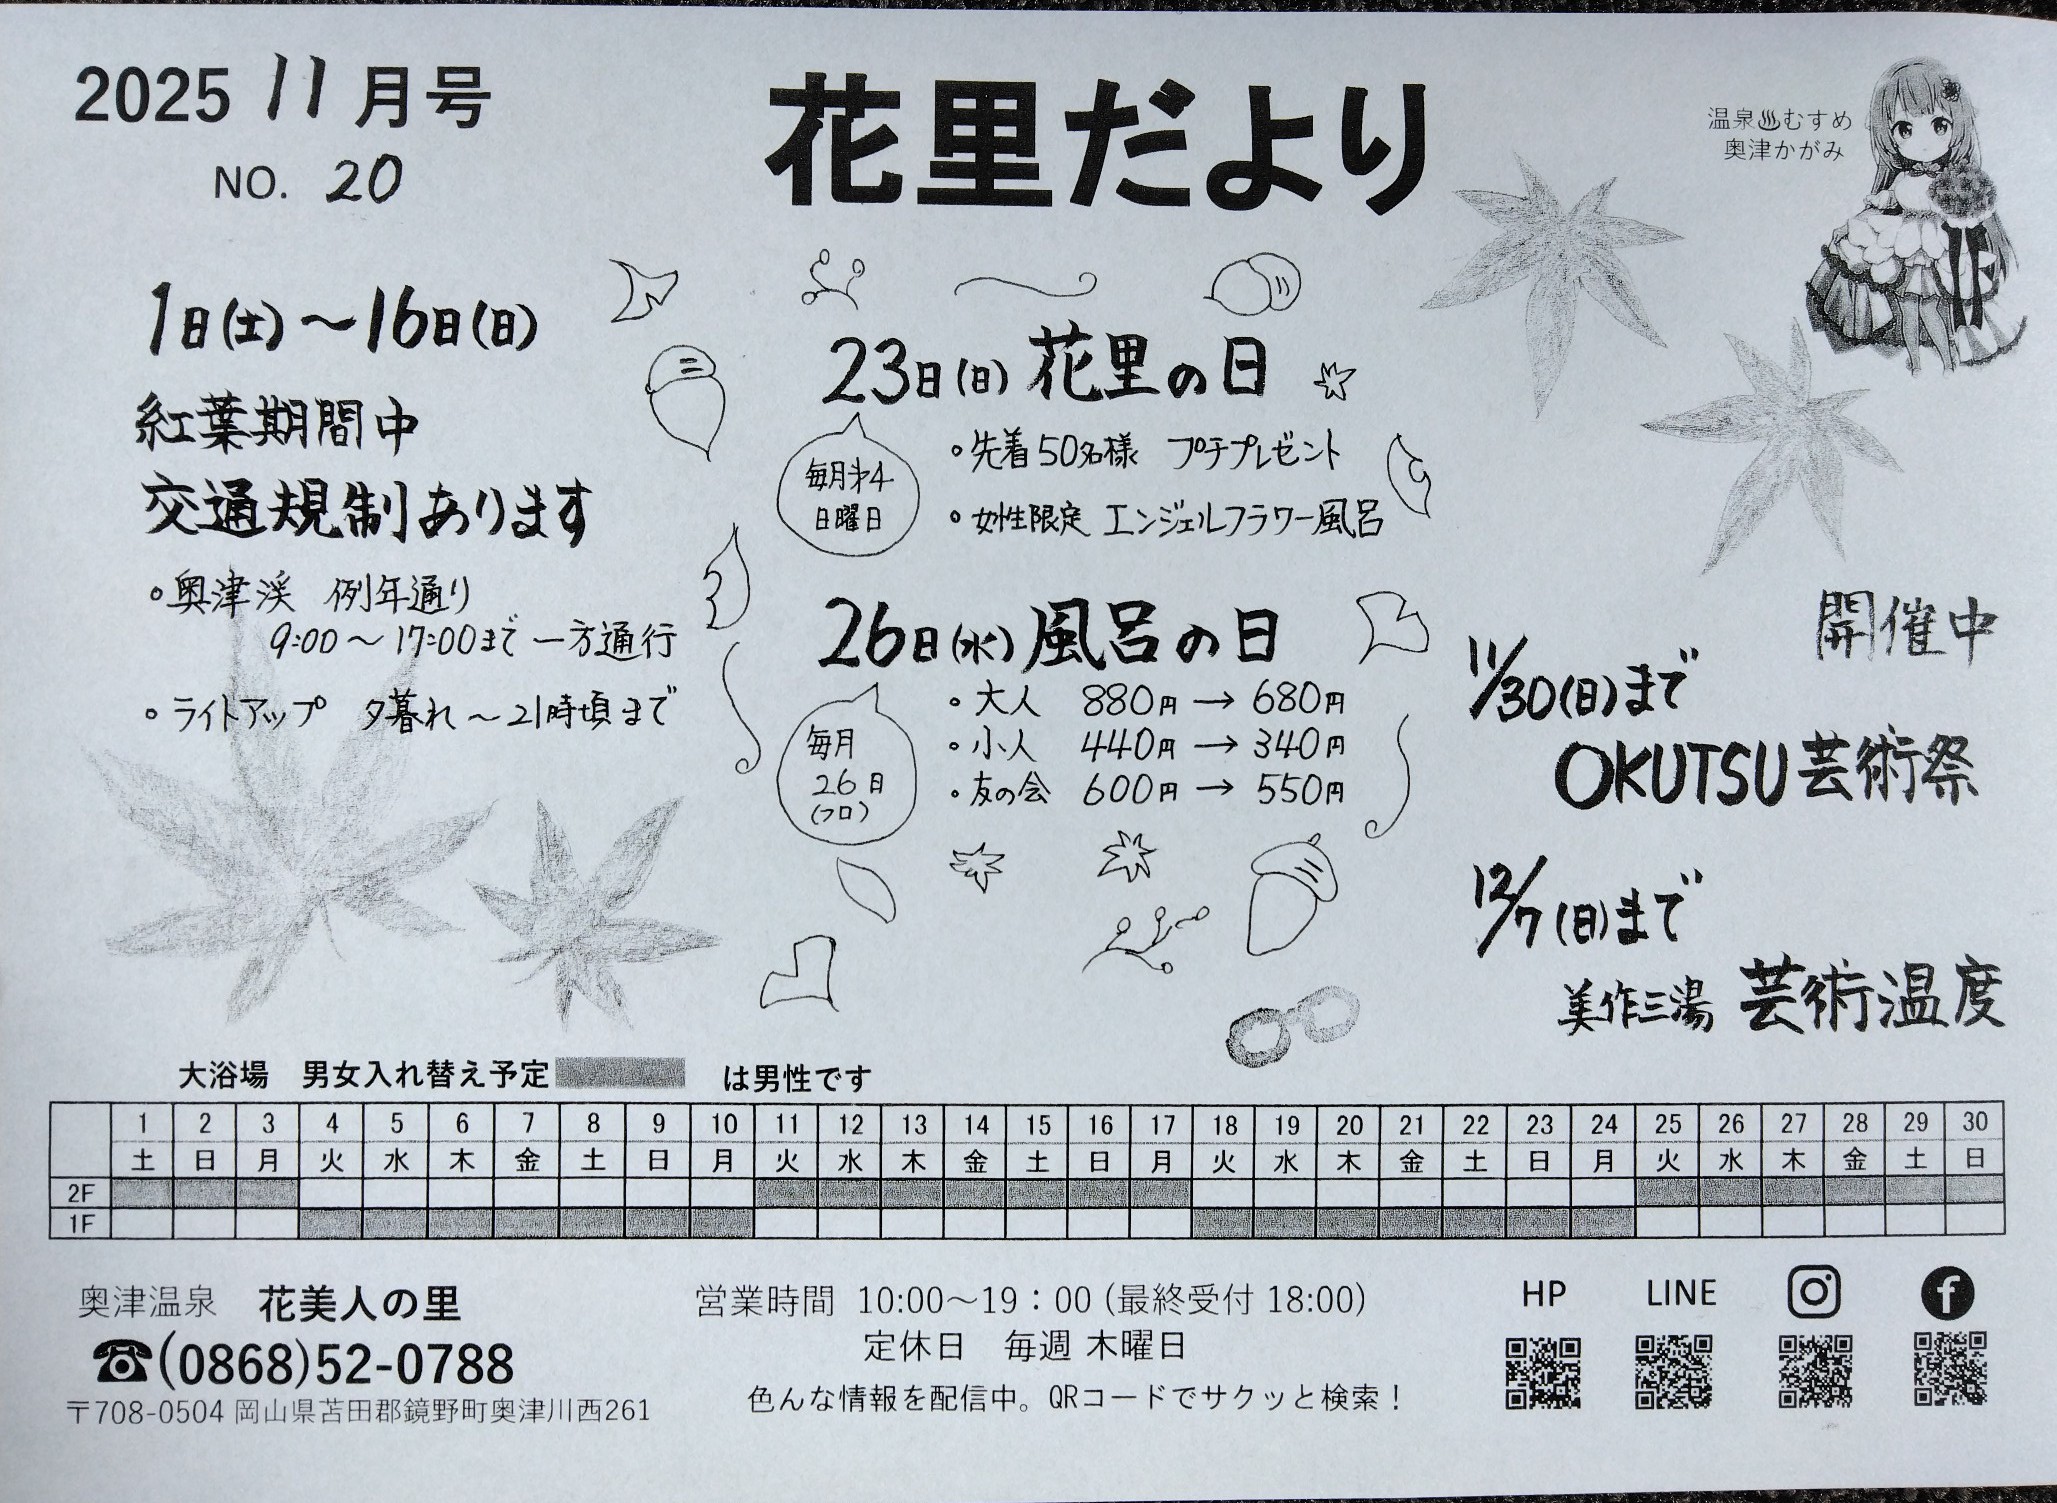 2025 11月号
NO. 20
花里だより
温泉♨むすめ
奥津かがみ
1日(土)〜16日(日)
紅葉期間中
交通規制あります
・奥津渓 例年通り
9:00〜17:00まで 一方通行
・ライトアップ 夕暮れ〜21時頃まで
23日(日)花里の日
毎月第4
日曜日
・先着50名様 プチプレゼント
・女性限定 エンジェルフラワー風呂
26日(水)風呂の日
毎月
26日
(フロ)
・大人 880円→680円
・小人 440円→340円
・友の会 600円→550円
開催中
11/30(日)まで
OKUTSU芸術祭
12/7(日)まで
美作三湯 芸術温度
大浴場 男女入れ替え予定 は男性です
1 2 3 4 5 6 7 8 9 10 11 12 13 14 15 16 17 18 19 20 21 22 23 24 25 26 27 28 29 30
土 日 月 火 水 木 金 土 日 月 火 水 木 金 土 日 月 火 水 木 金 土 日 月 火 水 木 金 土 日
2F
1F
奥津温泉 花美人の里
☎(0868)52-0788
〒708-0504 岡山県苫田郡鏡野町奥津川西261
営業時間 10:00〜19：00 (最終受付 18:00)
定休日 毎週 木曜日
色んな情報を配信中。QRコードでサクッと検索！
HP LINE